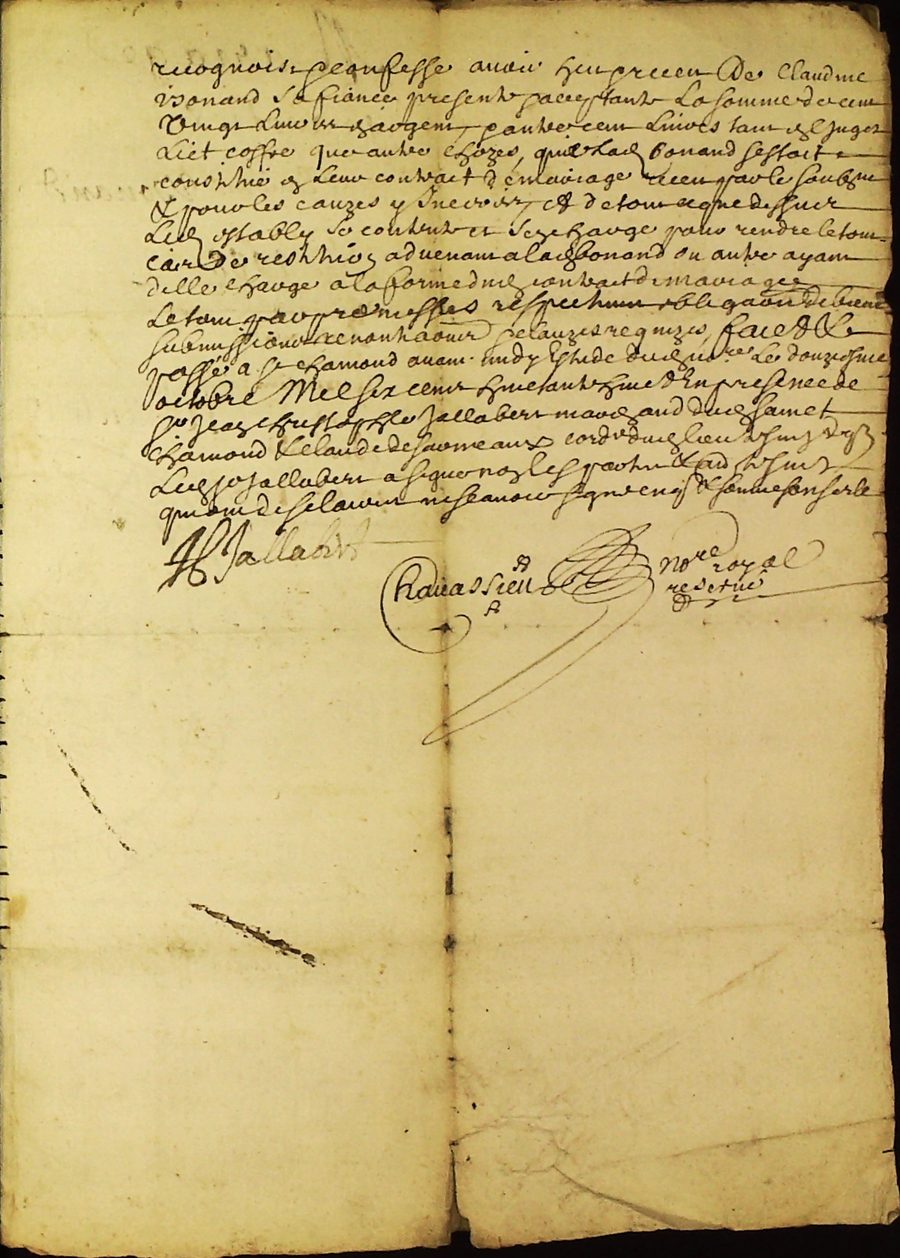 recognoist & confesse avoir heu & receu De Claudine
bonand sa fiancée presente & acceptante La somme de cent
Vingt Livres en argent, & autre cent Livres tant en
Lict coffre que autre chozes, que Lad bonand sestoit
constitué en Leur contract de mariage receu par le soubsne
& pour les cauzes y Inserés, & de tout ce que dessus
Led estably se contente et se charge pour rendre le tout
cas De restition advenant a lad bonand ou autre ayant
delle charge a la forme dud contract de mariage
Le tout par promesses respectives obligaon de biens
submissions renontiaons & clauzes requizes, faict &
passé a St Chamond avant midy Estude dud nore Le douziesme
octobre Mil six cent huictante huict En presence de
Sr Jean Christophle Jallabert marchand dud sainct
Chamond & Claude cord dud lieu tesmoingz
Led Sr Jallabert a signé non les parties & tesmoing
qui ont desclairé ne sçavoir signer enquis & sommes
Jallabert
Chavassieu nore royal